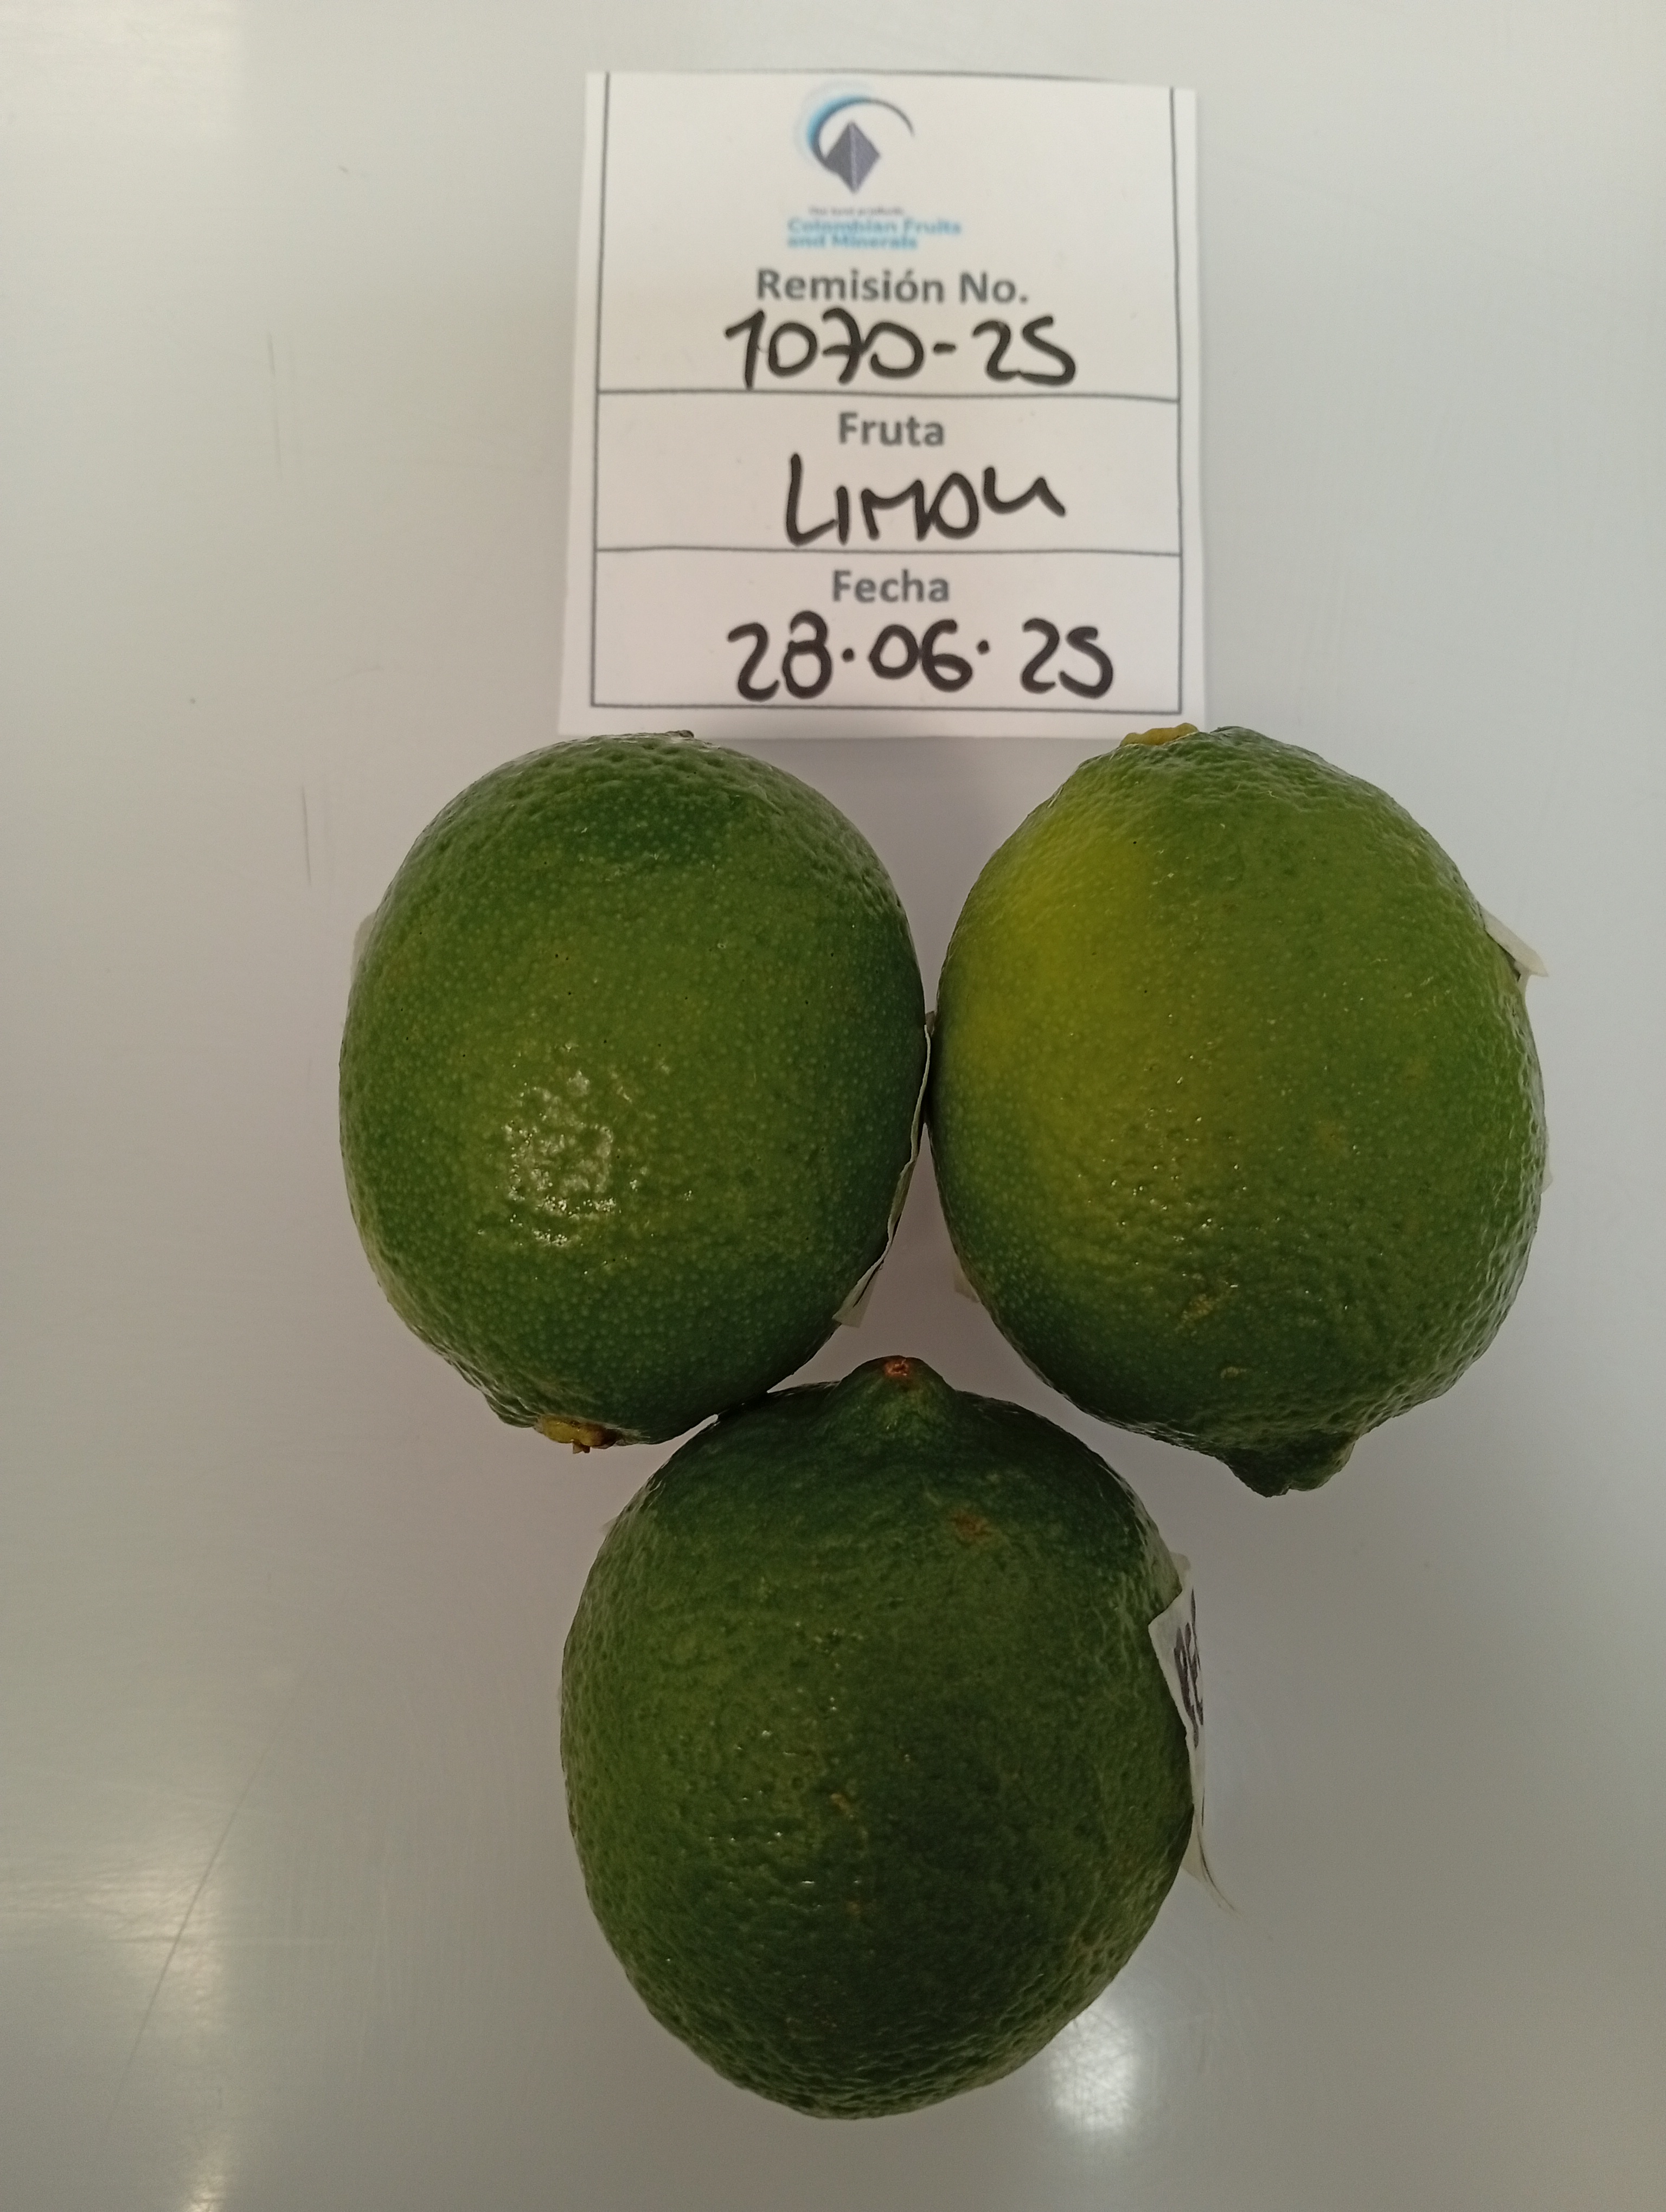 Colombian Fruits
and Minerals
Remisión No.
1070-25
Fruta
LIMON
Fecha
28.06.25